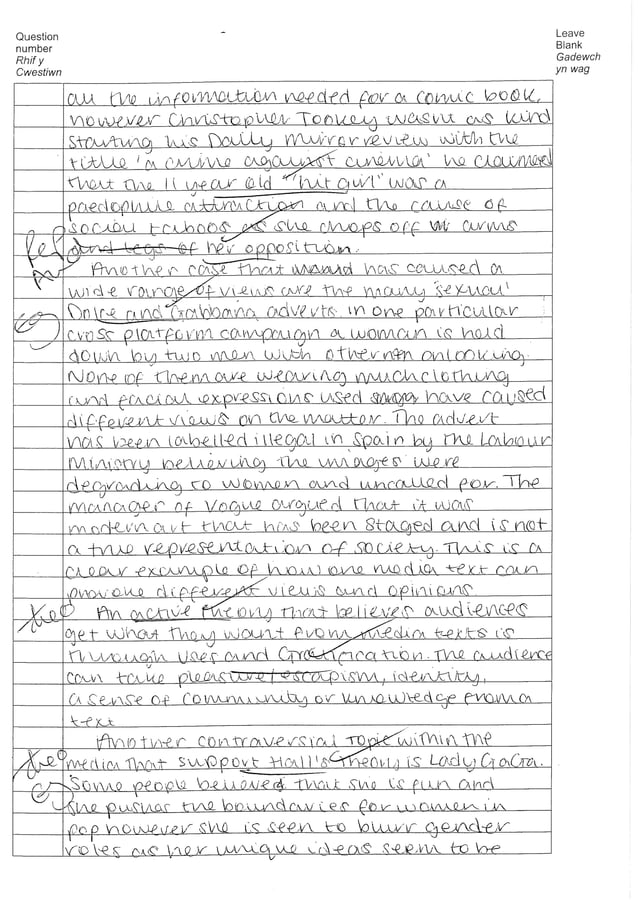 Question
number
Rhif y
Cwestiwn
Leave
Blank
Gadewch
yn wag
all the information needed for a comic book,
however Christopher Tookey wasnt as kind
starting his Daily Mirror review with the
titlle 'a crime against cinema' he claimed
that the 11 year old "hit girl" was a
paedophile attraction and the cause of
social taboos as she chops off arms
and legs of her opposition.
Another case that has caused a
wide range of views are the many 'sexual'
Dolce and Gabbana adverts. in one particular
cross platform campaign a woman is held
down by two men with other men onlooking.
None of them are wearing much clothing
and facial expressions used have caused
different views on the matter. The advert
has been labelled illegal in Spain by the Labour
Ministry believing the images were
degrading to women and uncalled for. The
manager of Vogue argued that it was
modern art that has been staged and is not
a true representation of society. This is a
clear example of how one media text can
provoke different views and opinions.
theo An active theory that believes audiences
get what they want from media texts is
through Uses and Gratification. The audience
can take pleasure/escapism, identity,
a sense of community or knowledge from a
text
Another contraversial topic within the
theo media that support Hall's Theory is Lady GaGa.
Some people believed that she is fun and
she pushes the boundaries for women in
pop however she is seen to blurr gender
roles as her unique ideas seem to be